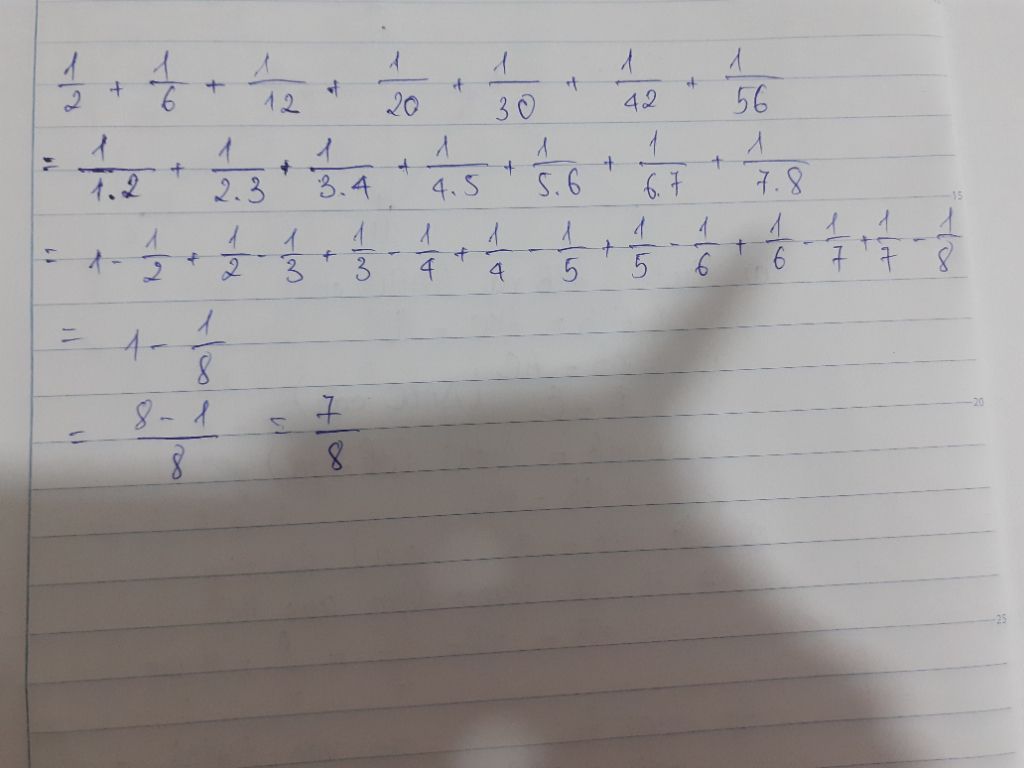 1/2 + 1/6 + 1/12 + 1/20 + 1/30 + 1/42 + 1/56
= 1/1.2 + 1/2.3 + 1/3.4 + 1/4.5 + 1/5.6 + 1/6.7 + 1/7.8
15
= 1 - 1/2 + 1/2 - 1/3 + 1/3 - 1/4 + 1/4 - 1/5 + 1/5 - 1/6 + 1/6 - 1/7 + 1/7 - 1/8
= 1 - 1/8
20
= 8 - 1/8 = 7/8
25